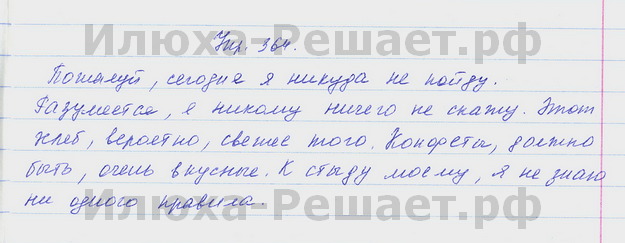 Упр. 364.
Илюха-Решает.рф
Пожалуй, сегодня я никуда не пойду.
Разумеется, я никому ничего не скажу. Этот
хлеб, вероятно, свежее того. Конфеты, должно
быть, очень вкусные. К стыду моему, я не знаю
ни одного правила.
Илюха-Решает.рф